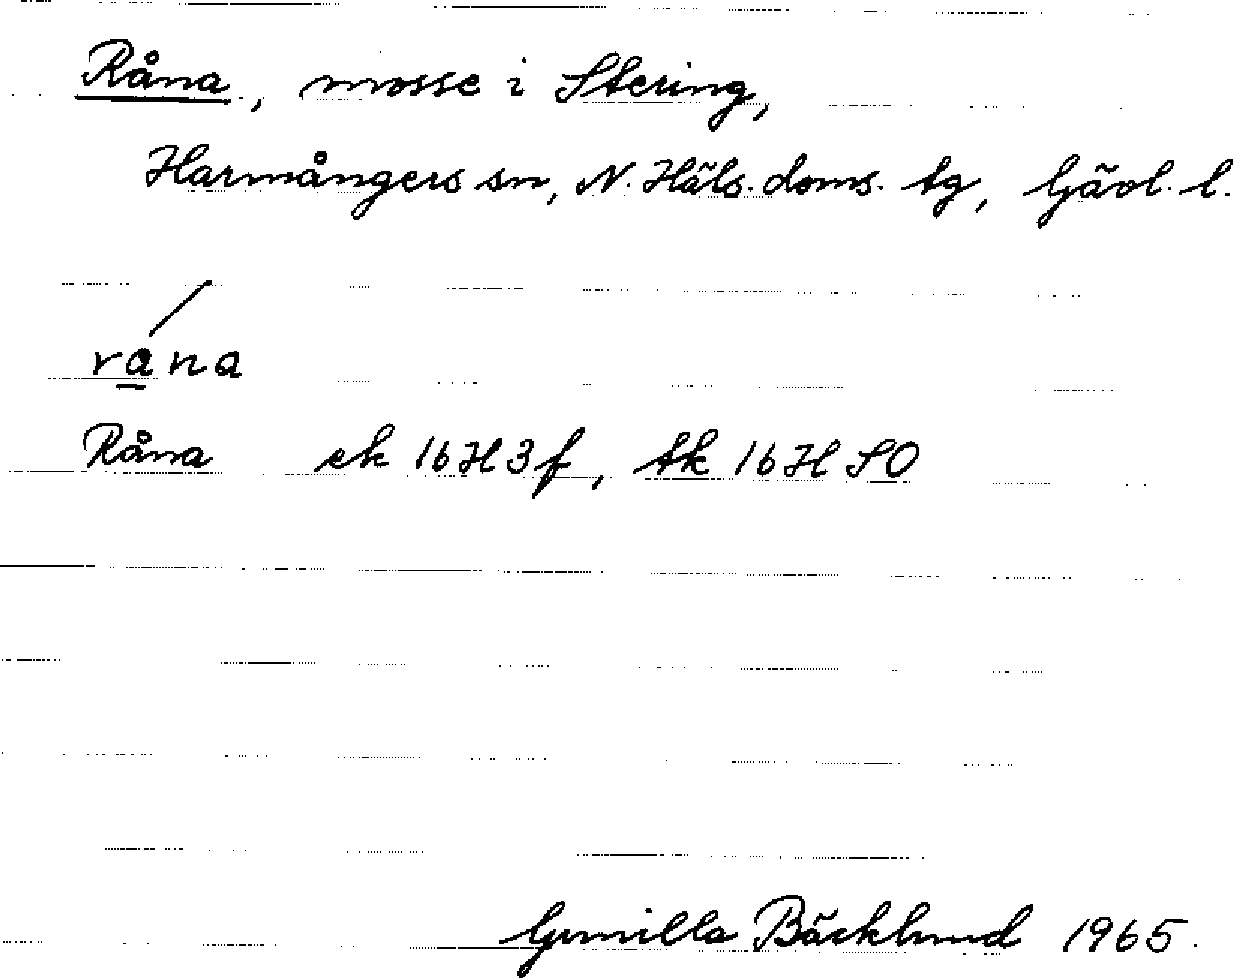 Råna, mosse i Stering,
Harmångers sn, N. Häls. doms. tg, Gävl. l.
rá̲na
Råna ek 16H3f, tk 16H SO
Gunilla Bäcklund 1965.